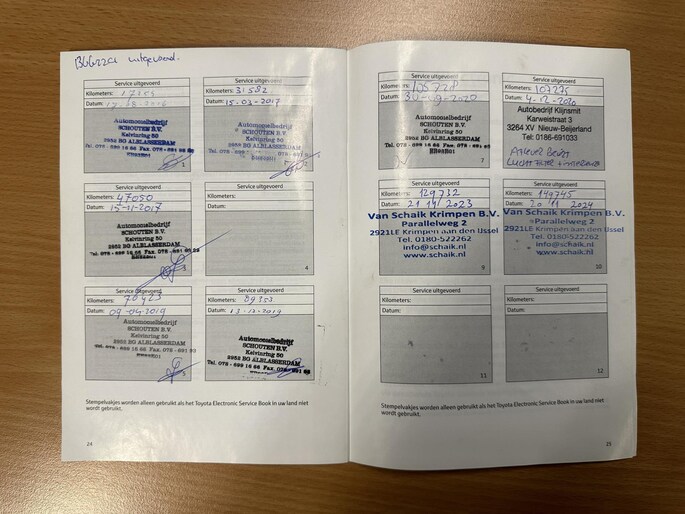 uitgevoerd.
Service uitgevoerd
Kilometers:
Datum:
Automobielbedrijf
SCHOUTEN B.V.
Kelvinring 50
2952 BG ALBLASSERDAM
1
Service uitgevoerd
Kilometers: 31582
Datum: 15-03-2017
Automobielbedrijf
SCHOUTEN B.V.
Kelvinring 50
2952 BG ALBLASSERDAM
Service uitgevoerd
Kilometers: 47050
Datum: 15-11-2017
Automobielbedrijf
SCHOUTEN B.V.
Kelvinring 50
2952 BG ALBLASSERDAM
3
Service uitgevoerd
Kilometers:
Datum:
4
Service uitgevoerd
Kilometers: 70423
Datum: 09-04-2019
Automobielbedrijf
SCHOUTEN B.V.
Kelvinring 50
2952 BG ALBLASSERDAM
5
Service uitgevoerd
Kilometers: 89353
Datum: 13-12-2019
Automobielbedrijf
SCHOUTEN B.V.
Kelvinring 50
2952 BG ALBLASSERDAM
Stempelvakjes worden alleen gebruikt als het Toyota Electronic Service Book in uw land niet
wordt gebruikt.
24
Service uitgevoerd
Kilometers:
Datum: 30-09-2020
Automobielbedrijf
SCHOUTEN B.V.
Kelvinring 50
2952 BG ALBLASSERDAM
7
Service uitgevoerd
Kilometers: 107275
Datum: 4-12-2020
Autobedrijf Klijnsmit
Karweistraat 3
3264 XV Nieuw-Beijerland
Tel: 0186-691033
Service uitgevoerd
Kilometers: 129732
Datum: 21 11 2023
Van Schaik Krimpen B.V.
Parallelweg 2
2921LE Krimpen aan den IJssel
Tel. 0180-522262
info@schaik.nl
www.schaik.nl
9
Service uitgevoerd
Kilometers: 149745
Datum: 20 11 2024
Van Schaik Krimpen B.V.
Parallelweg 2
2921LE Krimpen aan den IJssel
Tel. 0180-522262
info@schaik.nl
www.schaik.nl
10
Service uitgevoerd
Kilometers:
Datum:
11
Service uitgevoerd
Kilometers:
Datum:
12
Stempelvakjes worden alleen gebruikt als het Toyota Electronic Service Book in uw land niet
wordt gebruikt.
25